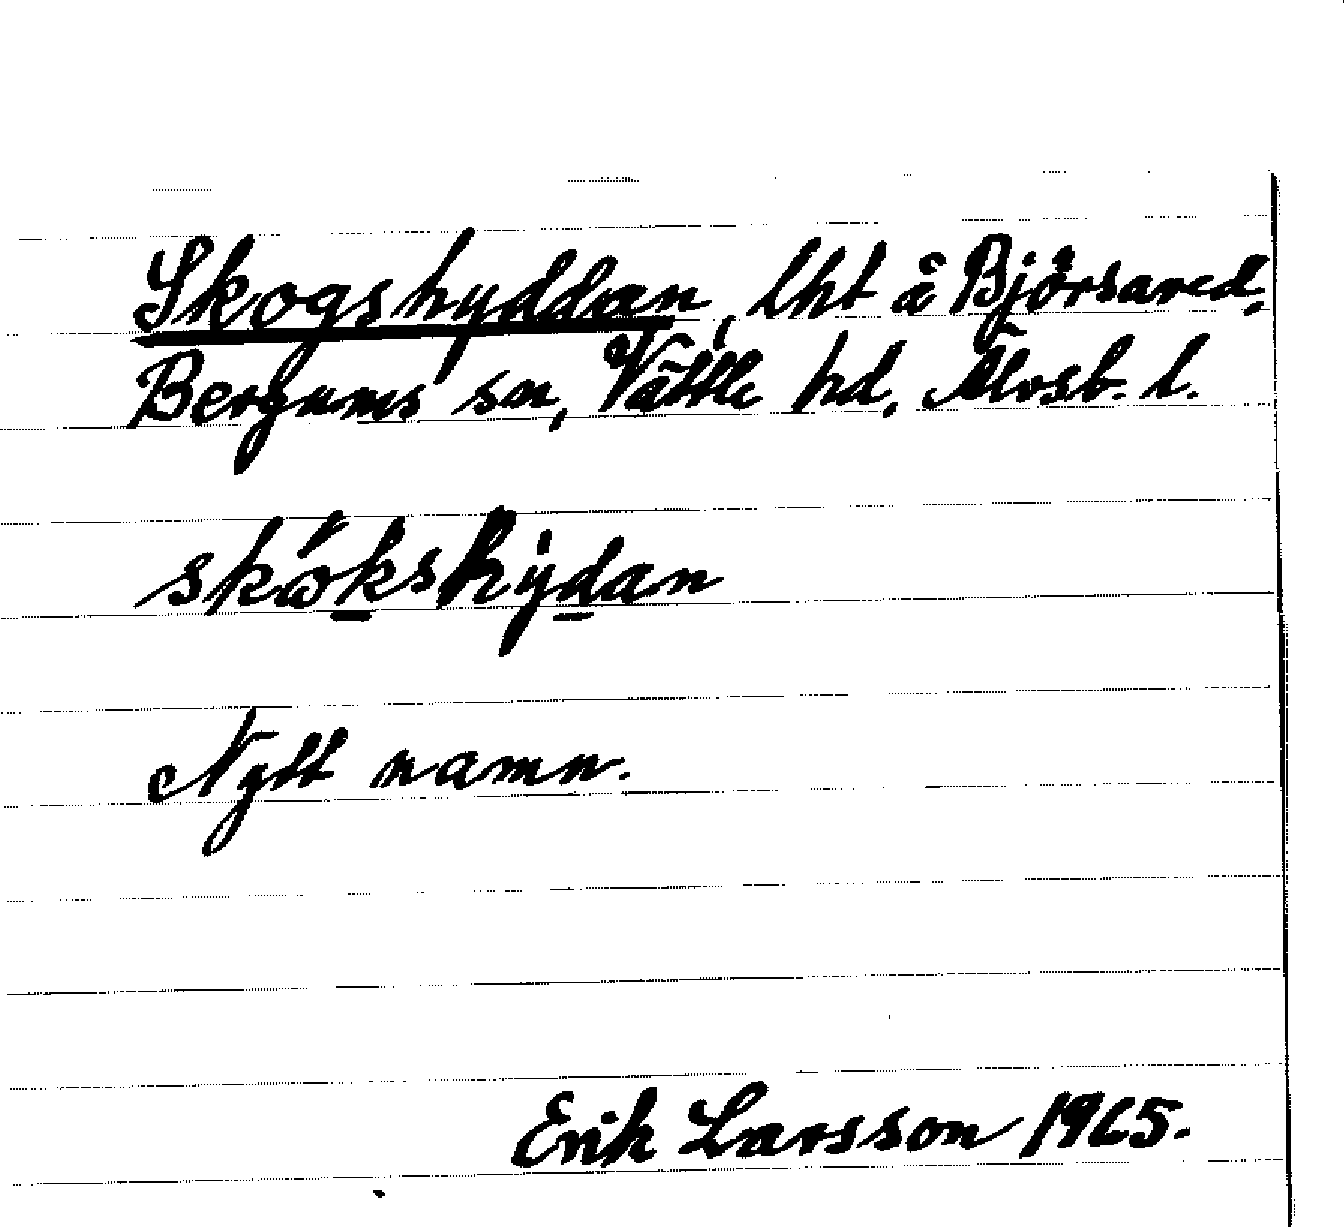 Skogshyddan, lht å Björsared,
Bergums sn, Vättle hd, Älvsb. l.
skω̋kshy̍dan
Nytt namn.
Erik Larsson 1965.